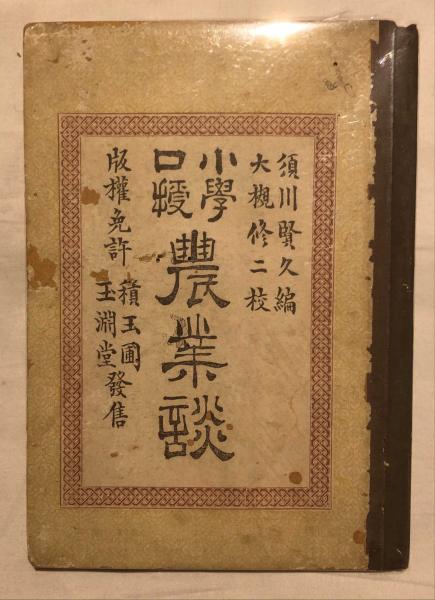 須川賢久編
大槻修二校
小學
口授
農業談
版權免許
積玉圃
玉淵堂發售